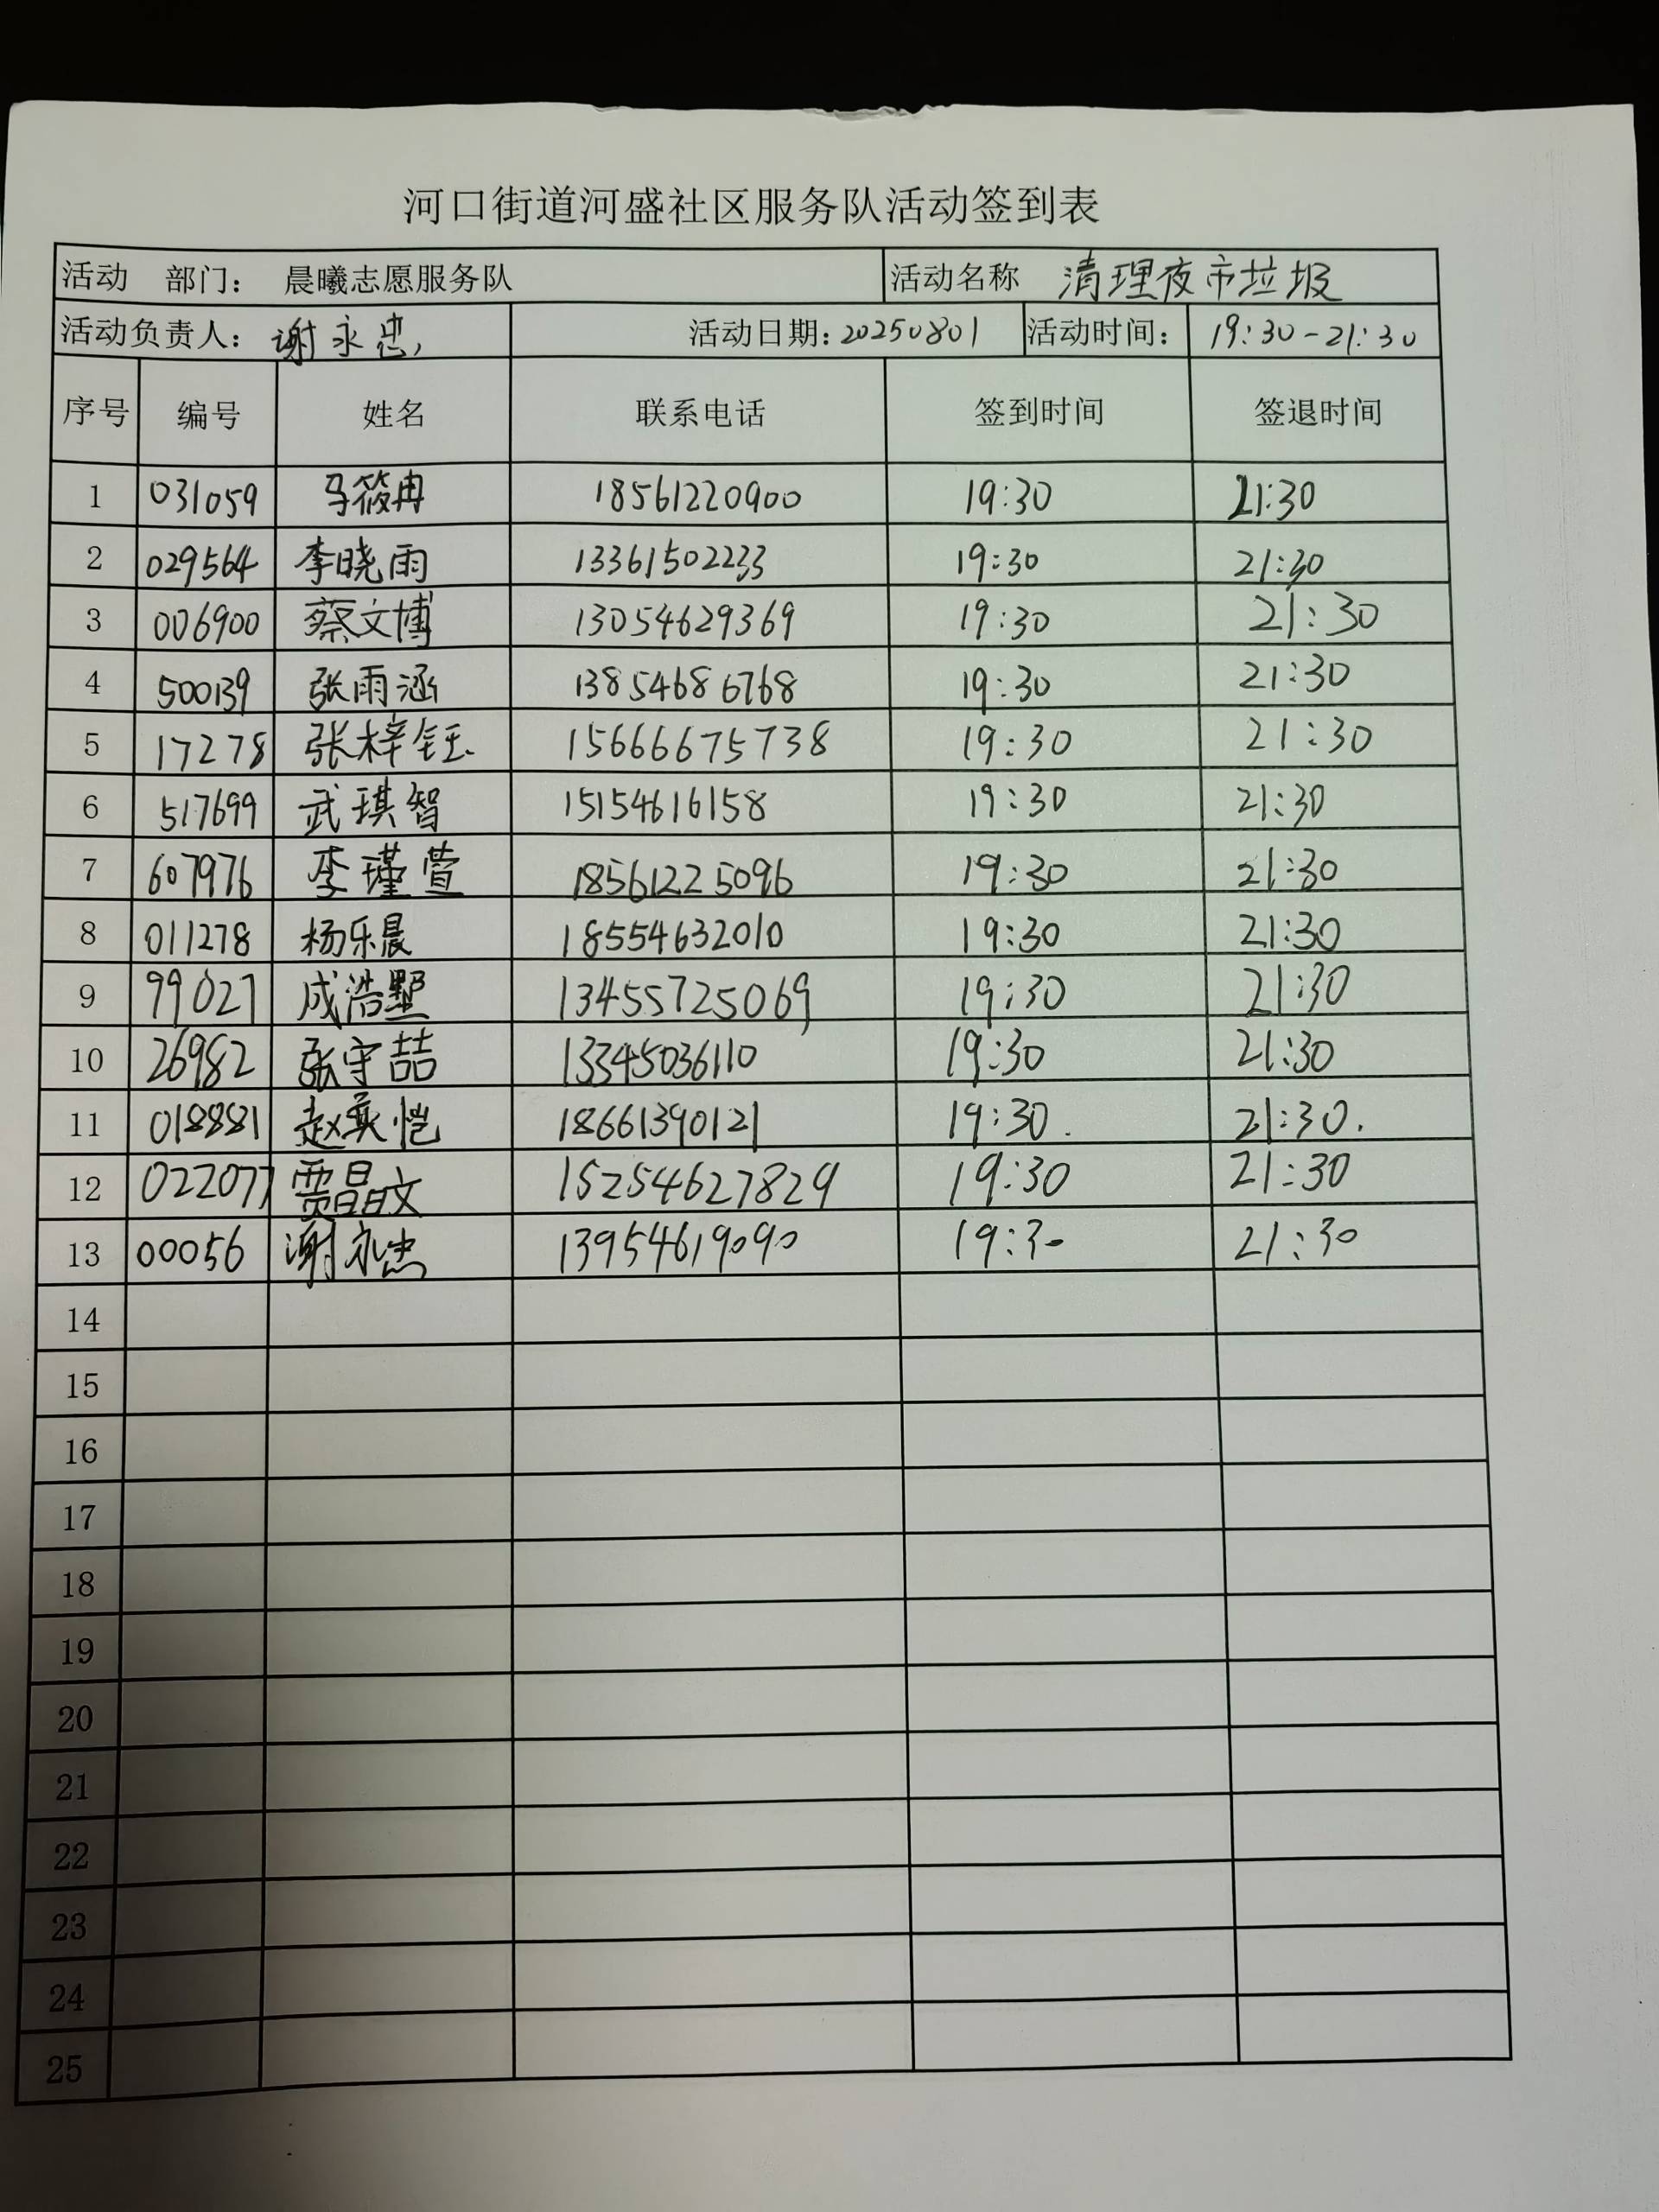 河口街道河盛社区服务队活动签到表
活动 部门： 晨曦志愿服务队 活动名称 清理夜市垃圾
活动负责人：谢永忠 活动日期：20250801 活动时间： 19:30-21:30
序号 编号 姓名 联系电话 签到时间 签退时间
1 031059 马筱冉 18561220900 19:30 21:30
2 029564 李晓雨 13361502233 19:30 21:30
3 006900 蔡文博 13054629369 19:30 21:30
4 500139 张雨涵 13854686768 19:30 21:30
5 17278 张梓钰 15666675738 19:30 21:30
6 517699 武琪智 15154616158 19:30 21:30
7 607976 李瑾萱 18561225096 19:30 21:30
8 011278 杨乐晨 18554632010 19:30 21:30
9 99027 成浩墅 13455725069 19:30 21:30
10 26982 张宇喆 13345036110 19:30 21:30
11 018881 赵奕恺 18661390121 19:30. 21:30.
12 022077 贾晶文 15254627829 19:30 21:30
13 00056 谢永忠 13954619090 19:30 21:30
14
15
16
17
18
19
20
21
22
23
24
25